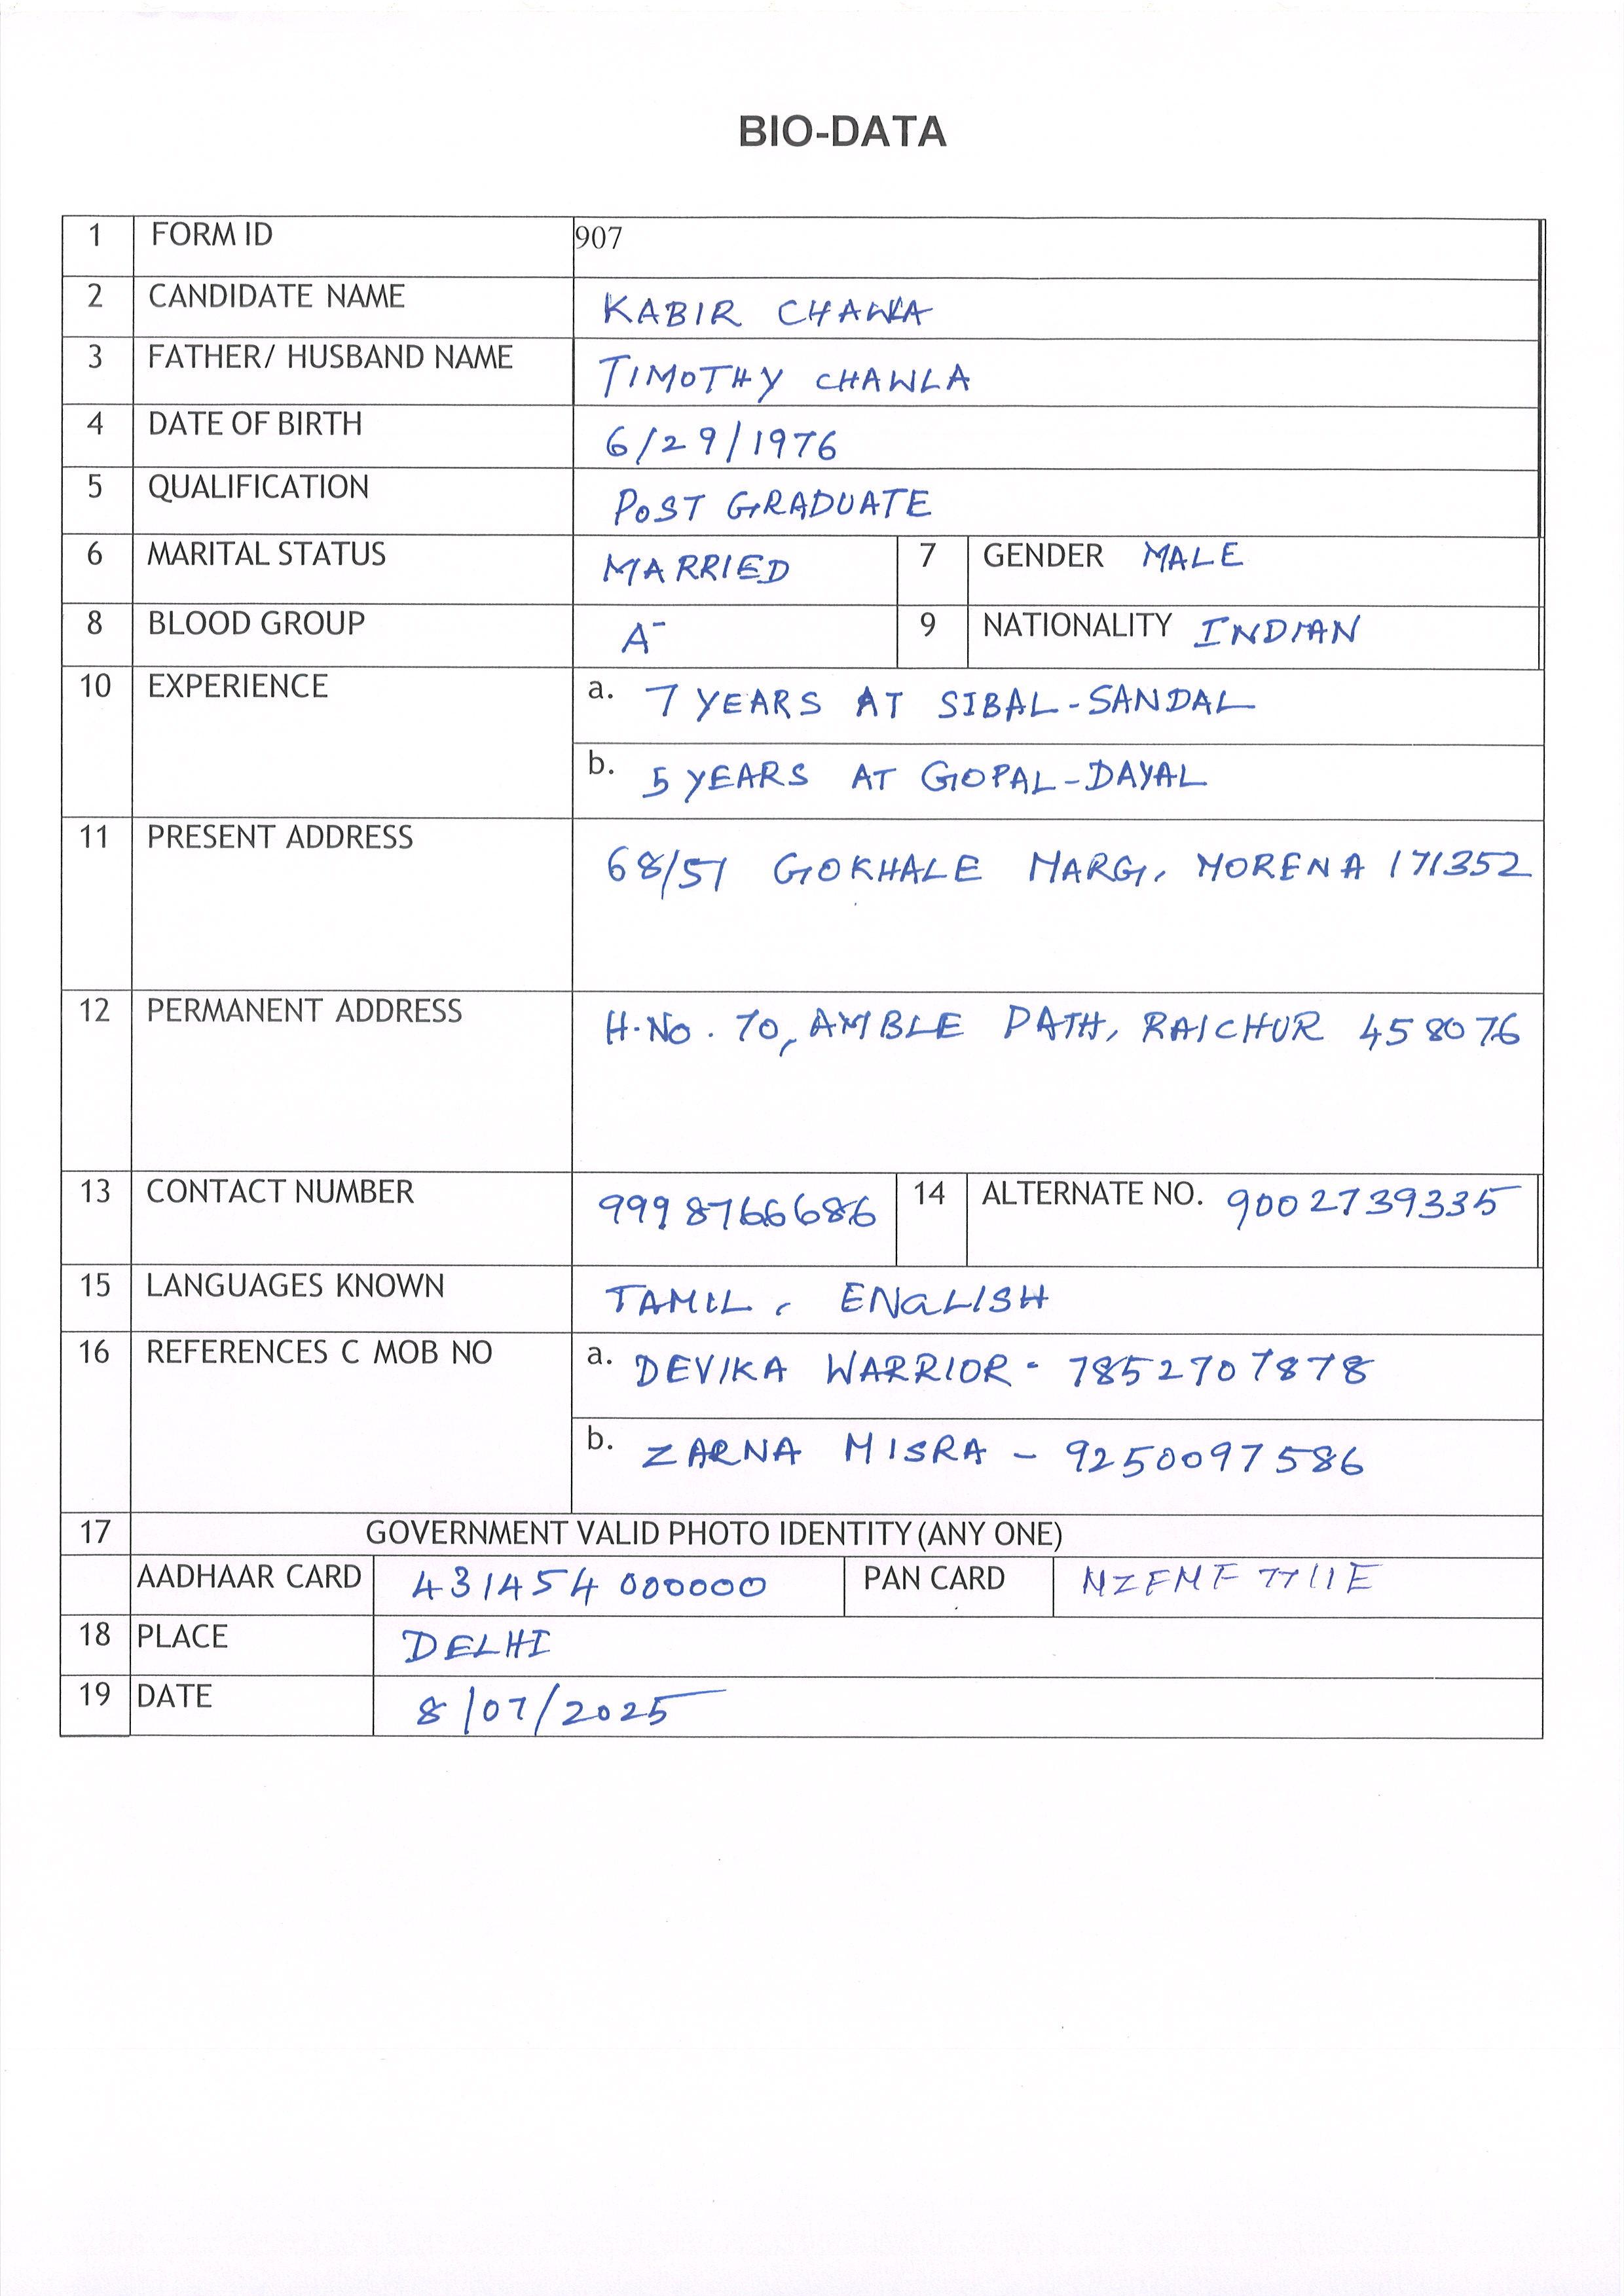 BIO-DATA
1 FORM ID 907
2 CANDIDATE NAME KABIR CHAWLA
3 FATHER/ HUSBAND NAME TIMOTHY CHAWLA
4 DATE OF BIRTH 6/29/1976
5 QUALIFICATION POST GRADUATE
6 MARITAL STATUS MARRIED 7 GENDER MALE
8 BLOOD GROUP A- 9 NATIONALITY INDIAN
10 EXPERIENCE a. 7 YEARS AT SIBAL-SANDAL
b. 5 YEARS AT GOPAL-DAYAL
11 PRESENT ADDRESS 68/51 GOKHALE MARG, MORENA 171352
12 PERMANENT ADDRESS H.NO. 70, AMBLE PATH, RAICHUR 458076
13 CONTACT NUMBER 9998766686 14 ALTERNATE NO. 9002739335
15 LANGUAGES KNOWN TAMIL, ENGLISH
16 REFERENCES C MOB NO a. DEVIKA WARRIOR - 7852707878
b. ZARNA MISRA - 9250097586
17 GOVERNMENT VALID PHOTO IDENTITY (ANY ONE)
AADHAAR CARD 431454000000 PAN CARD NZFMF7711E
18 PLACE DELHI
19 DATE 8/07/2025